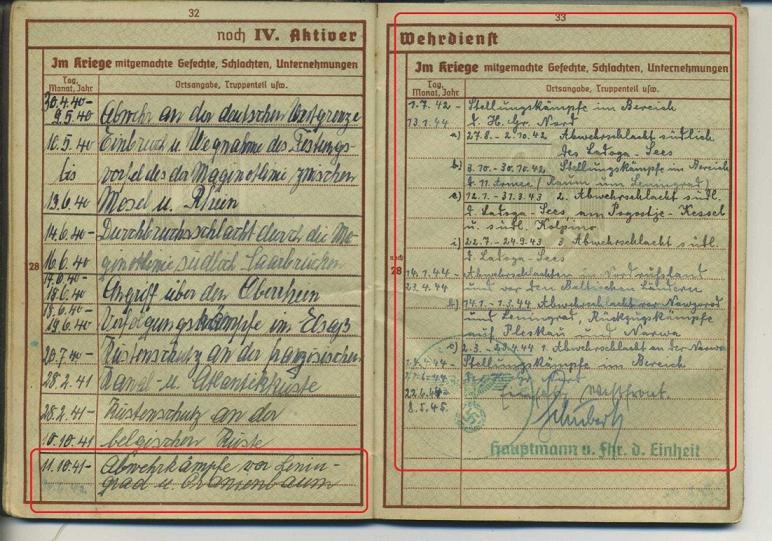 32
noch IV. Aktiver
Im Kriege mitgemachte Gefechte, Schlachten, Unternehmungen
Tag, Monat, Jahr
Ortsangabe, Truppenteil usw.
30.4.40-
9.5.40 Abwehr an der deutschen Westgrenze
10.5.40 Einbruch u. Wegnahme des Festungs-
bis vorfeldes der Maginotlinie zwischen
13.6.40 Mosel u. Rhein
14.6.40- Durchbruchsschlacht durch die Ma-
16.6.40 ginotlinie südlich Saarbrücken
28
17.6.40-
18.6.40 Angriff über den Oberrhein
18.6.40-
19.6.40 Verfolgungskämpfe im Elsaß
20.7.40- Küstenschutz an der französischen
28.2.41 Kanal- u. Atlantikküste
28.2.41- Küstenschutz an der
10.10.41 belgischen Küste
11.10.41- Abwehrkämpfe vor Lenin-
grad u. Oranienbaum
33
Wehrdienst
Im Kriege mitgemachte Gefechte, Schlachten, Unternehmungen
Tag, Monat, Jahr
Ortsangabe, Truppenteil usw.
1.7.42- Stellungskämpfe im Bereich
13.1.44 d. H. Gr. Nord
a) 27.8.-2.10.42 Abwehrschlacht südlich
des Ladoga-Sees
b) 3.10.-30.10.42 Stellungskämpfe im Bereich
d. 11. Armee (Raum um Leningrad)
12.1.-31.3.43 2. Abwehrschlacht südl.
d. Ladoga-Sees, am Pogostje-Kessel
u. südl. Kolpino
22.7.-24.9.43 3. Abwehrschlacht südl.
d. Ladoga-Sees
noch
28
14.1.44 Abwehrschlachten in Nordrußland
und vor den Baltischen Ländern
14.1.-1.3.44 Abwehrschlacht vor Nowgorod
und Leningrad, Rückzugskämpfe
auf Pleskau und Narwa
2.3.- 1. Abwehrschlacht an der Narwa
Stellungskämpfe im Bereich
Westfront
8.5.45.
Schubert
Hauptmann u. Fhr. d. Einheit